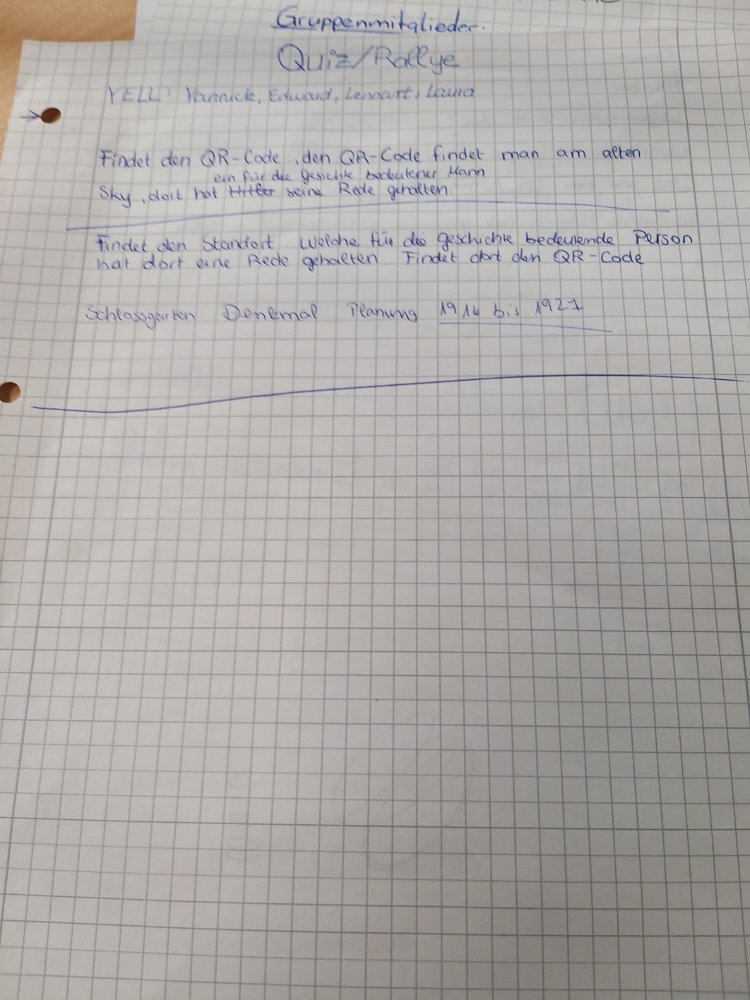 Gruppenmitglieder.
Quiz/Rallye
YELL: Yannick, Edward, Lennart, Laura
Findet den QR-Code, den QR-Code findet man am alten
ein für die gesichte bedeutener Mann
Sky, dort hat Hitler seine Rede gehalten
Findet den Standort. Welche für die geschichte bedeutende Person
hat dort eine Rede gehalten. Findet dort den QR-Code
Schlossgarten Denkmal Planung 1914 bis 1927